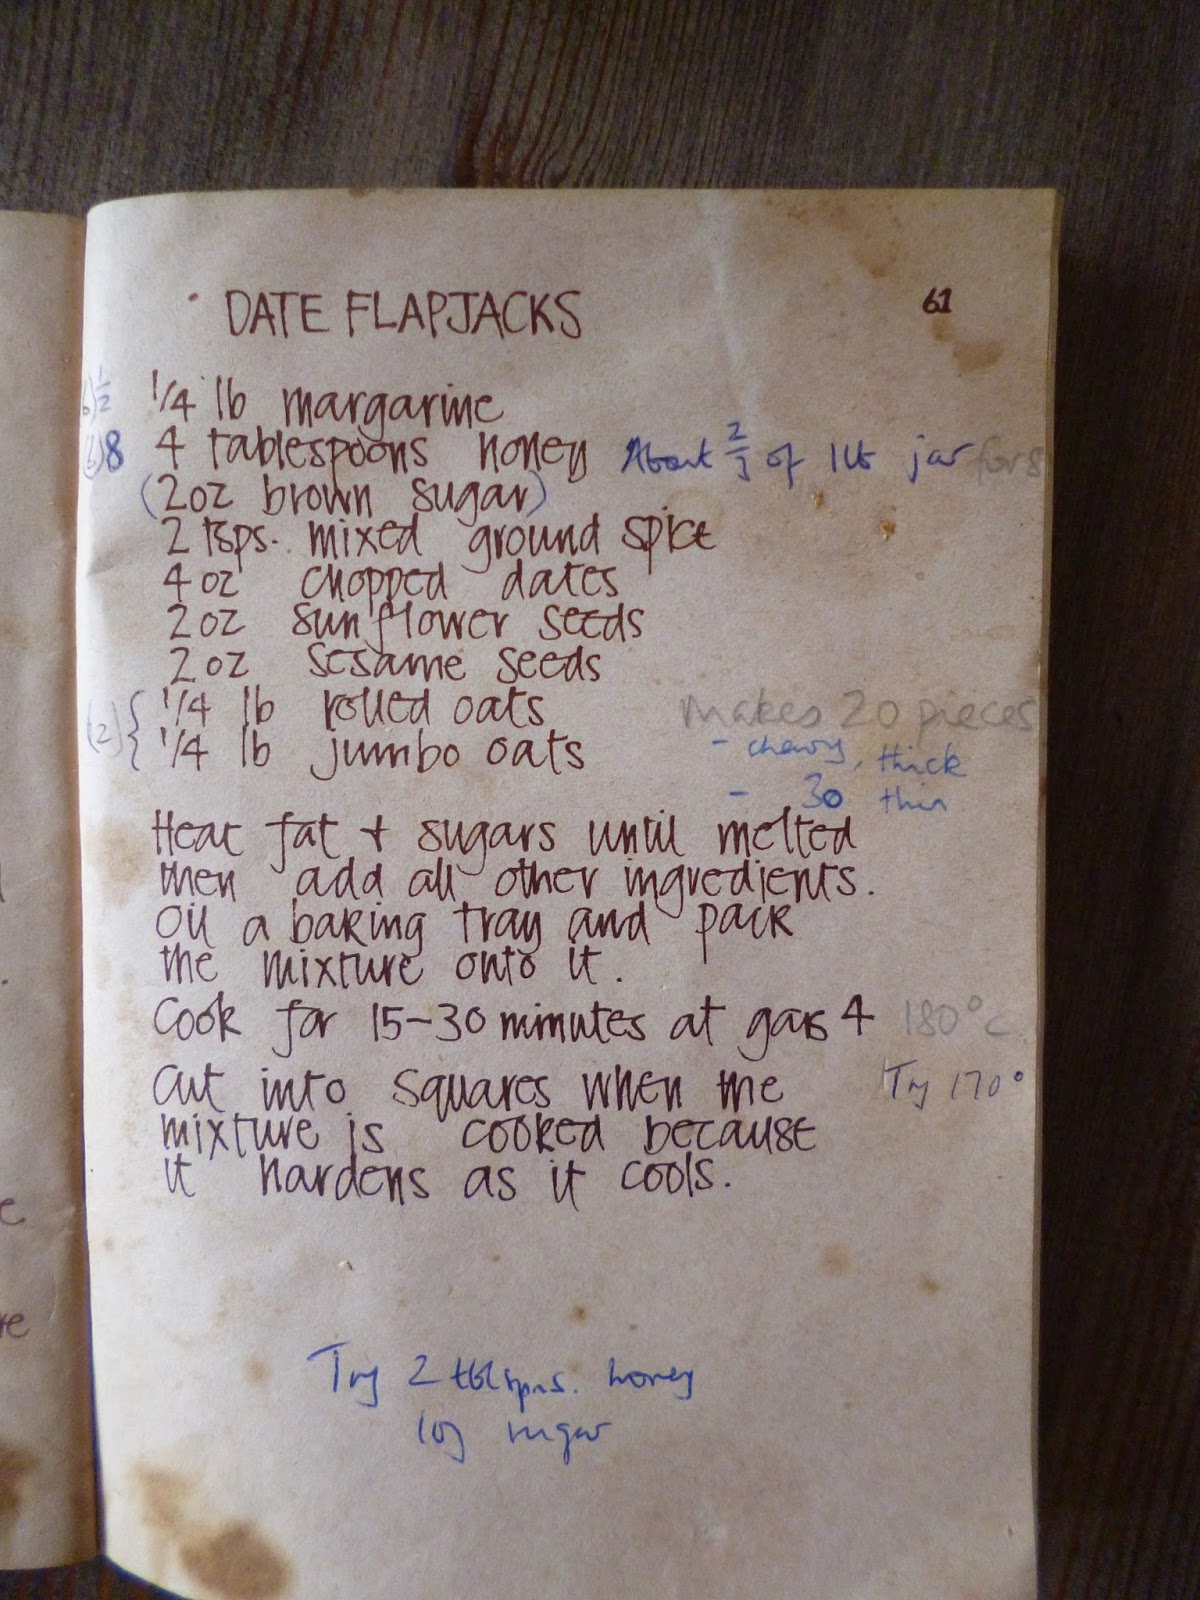 DATE FLAPJACKS 61
½ 1/4 lb margarine
(6)8 4 tablespoons honey About 2/3 of 1lb jar for 8
(2oz brown sugar)
2 tsps. mixed ground spice
4 oz chopped dates
2 oz sunflower seeds
2 oz sesame seeds
1/4 lb rolled oats makes 20 pieces
(2) { 1/4 lb jumbo oats - chewy, thick
- 30 thin
Heat fat + sugars until melted
then add all other ingredients.
Oil a baking tray and pack
the mixture onto it.
Cook for 15-30 minutes at gas 4 180°c
Cut into squares when the Try 170°
mixture is cooked because
it hardens as it cools.
Try 2 tblspns. honey
1oz sugar